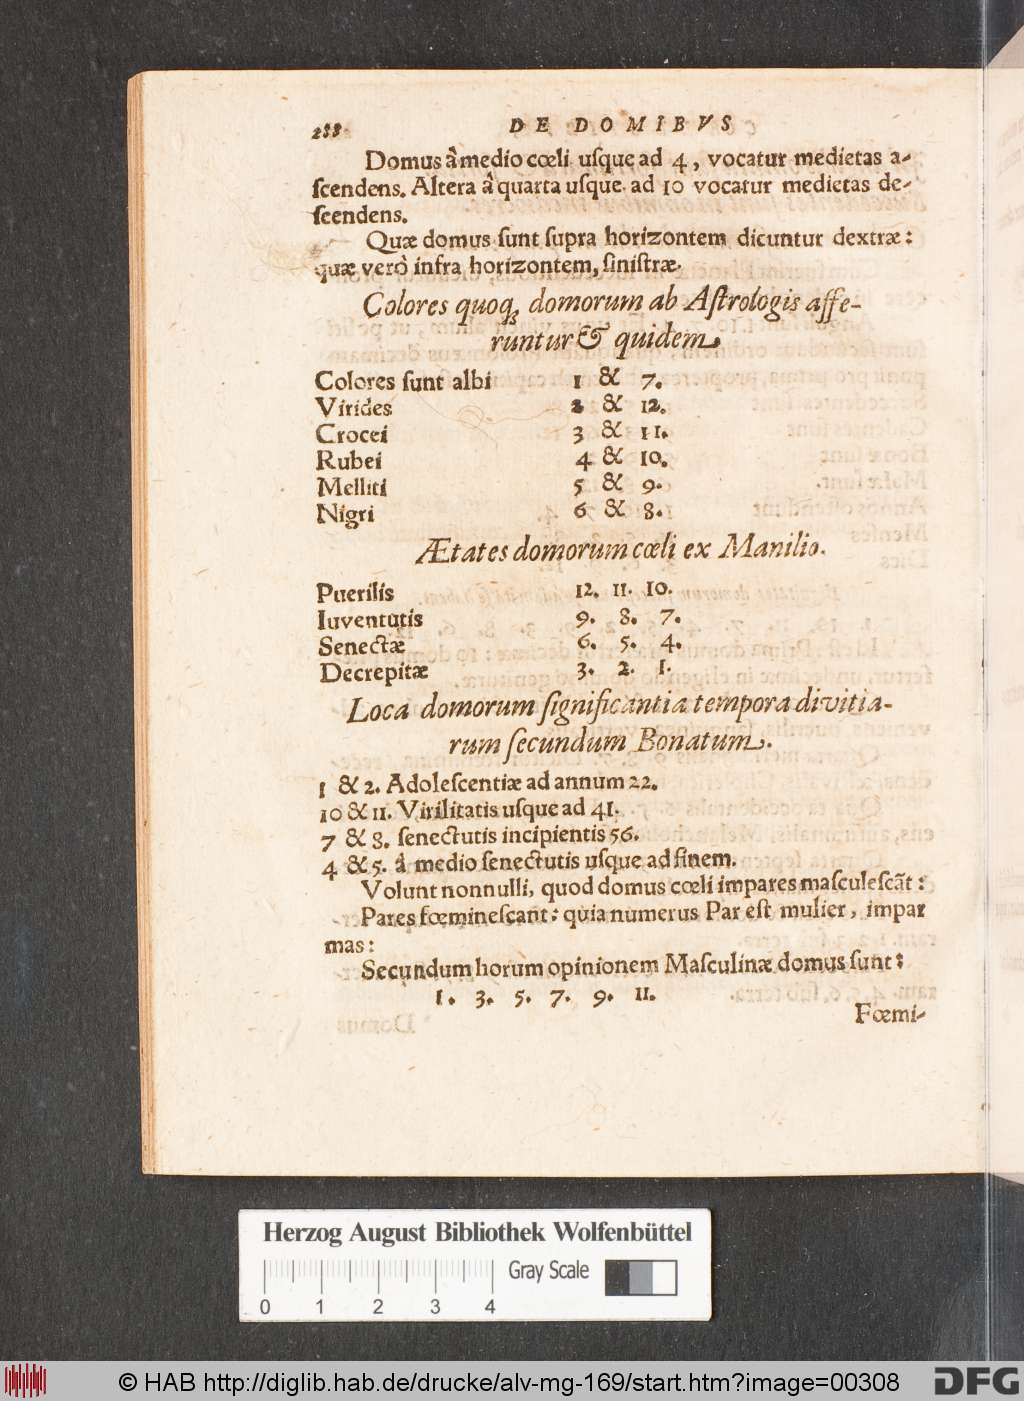 288 DE DOMIBVS
Domus à medio cœli uſque ad 4, vocatur medietas a-
ſcendens. Altera à quarta uſque ad 10 vocatur medietas de-
ſcendens.
Quæ domus ſunt ſupra horizontem dicuntur dextræ:
quæ verò infra horizontem, ſiniſtræ.
Colores quoq; domorum ab Aſtrologis affe-
runtur & quidem
Colores ſunt albi 1 & 7.
Virides 2 & 12.
Crocei 3 & 11.
Rubei 4 & 10.
Melliti 5 & 9.
Nigri 6 & 8.
Ætates domorum cœli ex Manilio.
Puerilis 12. 11. 10.
Iuventutis 9. 8. 7.
Senectæ 6. 5. 4.
Decrepitæ 3. 2. 1.
Loca domorum ſignificantia tempora divitia-
rum ſecundum Bonatum.
1 & 2. Adoleſcentiæ ad annum 22.
10 & 11. Virilitatis uſque ad 41.
7 & 8. ſenectutis incipientis 56.
4 & 5. à medio ſenectutis uſque ad finem.
Volunt nonnulli, quod domus cœli impares maſculeſcāt:
Pares fœmineſcant: quia numerus Par eſt mulier, impar
mas:
Secundum horum opinionem Maſculinæ domus ſunt:
1. 3. 5. 7. 9. 11.
Fœmi-
Herzog August Bibliothek Wolfenbüttel
Gray Scale
0 1 2 3 4
© HAB http://diglib.hab.de/drucke/alv-mg-169/start.htm?image=00308
DFG